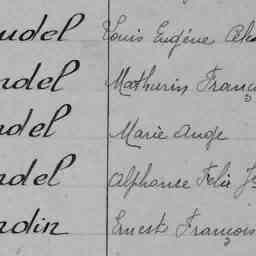 udel Louis Eugène
ndel Mathurin Franço
ndel Marie Ange
ndel Alphonse Felix
ndin Ernest François